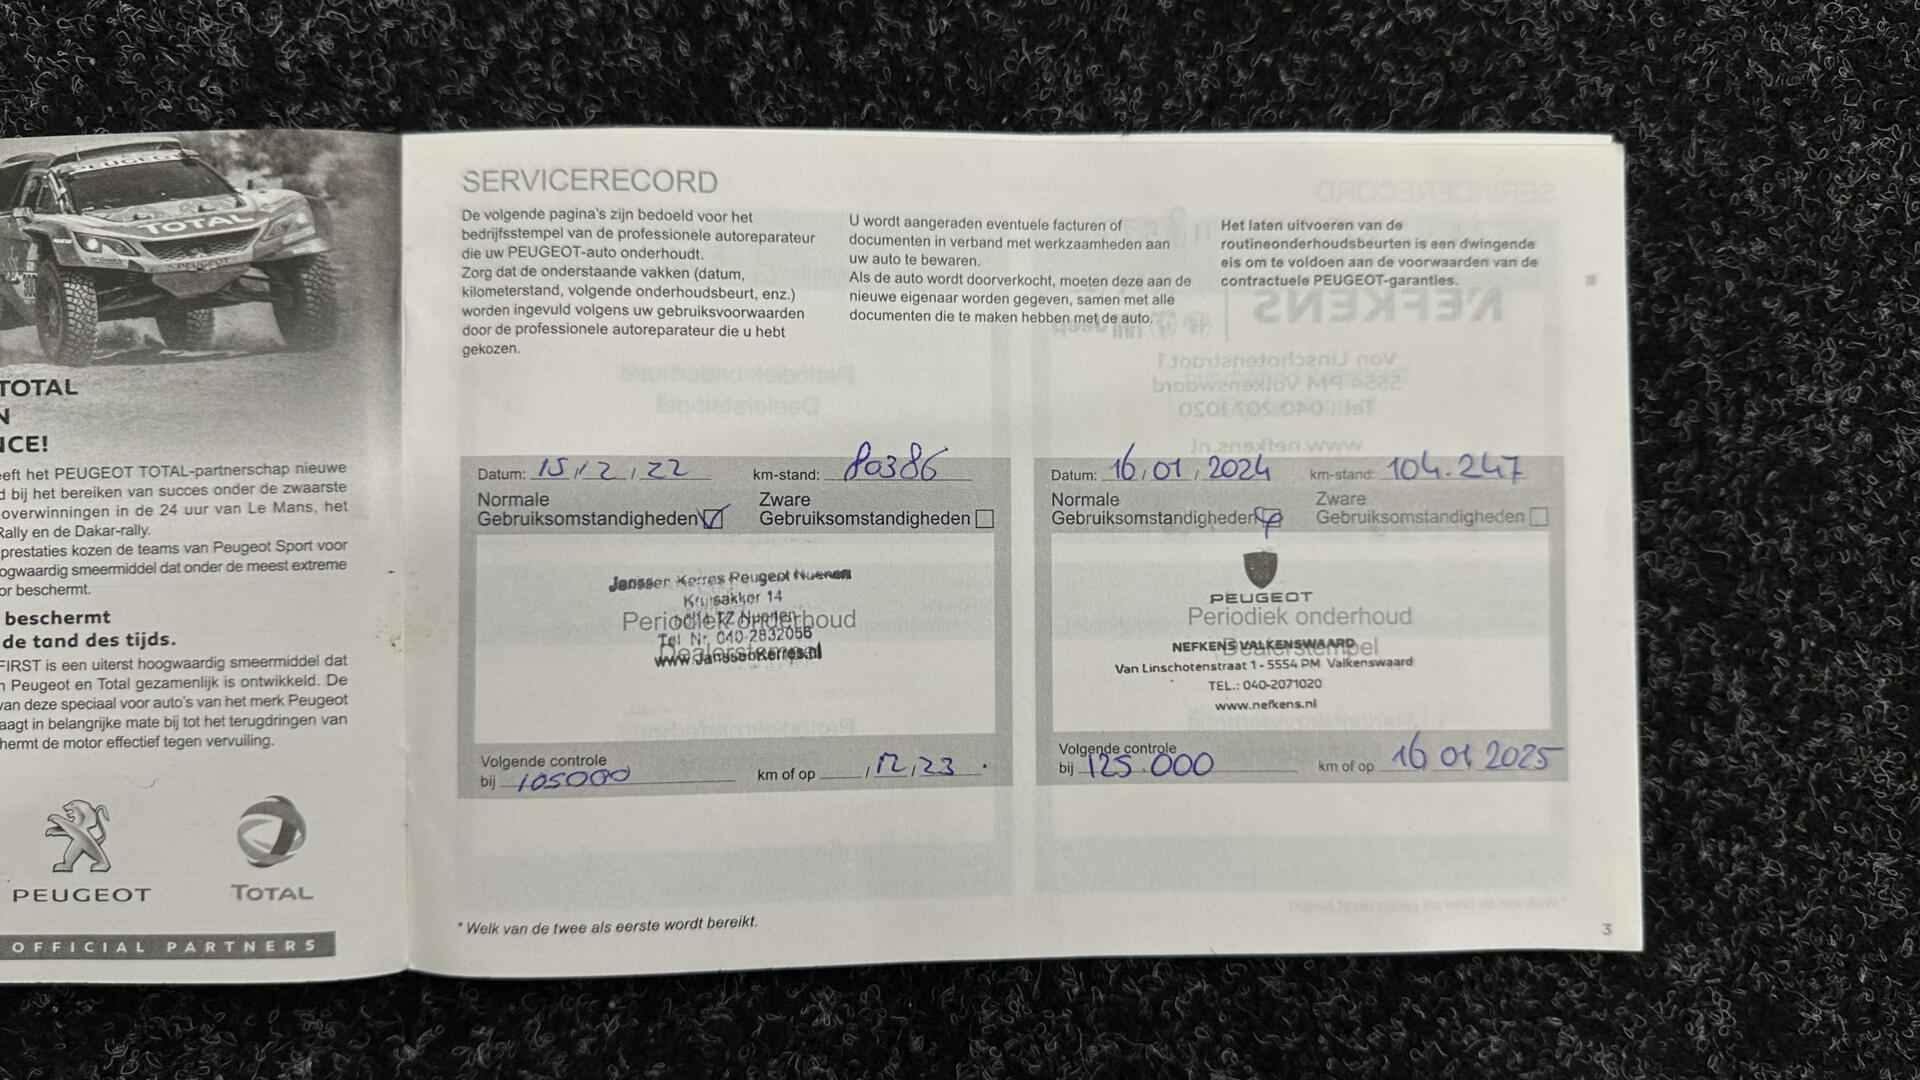 PEUGEOT
TOTAL
PEUGEOT
TOTAL
N
NCE!
eeft het PEUGEOT TOTAL-partnerschap nieuwe
d bij het bereiken van succes onder de zwaarste
overwinningen in de 24 uur van Le Mans, het
Rally en de Dakar-rally.
prestaties kozen de teams van Peugeot Sport voor
oogwaardig smeermiddel dat onder de meest extreme
or beschermt.
beschermt
de tand des tijds.
FIRST is een uiterst hoogwaardig smeermiddel dat
n Peugeot en Total gezamenlijk is ontwikkeld. De
van deze speciaal voor auto's van het merk Peugeot
raagt in belangrijke mate bij tot het terugdringen van
hermt de motor effectief tegen vervuiling.
PEUGEOT
TOTAL
OFFICIAL PARTNERS
SERVICERECORD
De volgende pagina's zijn bedoeld voor het
bedrijfsstempel van de professionele autoreparateur
die uw PEUGEOT-auto onderhoudt.
Zorg dat de onderstaande vakken (datum,
kilometerstand, volgende onderhoudsbeurt, enz.)
worden ingevuld volgens uw gebruiksvoorwaarden
door de professionele autoreparateur die u hebt
gekozen.
U wordt aangeraden eventuele facturen of
documenten in verband met werkzaamheden aan
uw auto te bewaren.
Als de auto wordt doorverkocht, moeten deze aan de
nieuwe eigenaar worden gegeven, samen met alle
documenten die te maken hebben met de auto.
Het laten uitvoeren van de
routineonderhoudsbeurten is een dwingende
eis om te voldoen aan de voorwaarden van de
contractuele PEUGEOT-garanties.
Datum: 15/2/22 km-stand: 80386
Normale Zware
Gebruiksomstandigheden Gebruiksomstandigheden
Janssen Kerres Peugeot Nuenen
Kruisakker 14
Periodiek onderhoud
Nuenen
Tel Nr. 040-2832056
Dealerstempel
www.JanssenKerres.nl
Volgende controle
bij 105000 km of op , 12, 23
Datum: 16, 01, 2024 km-stand: 104.247
Normale Zware
Gebruiksomstandigheden Gebruiksomstandigheden
PEUGEOT
Periodiek onderhoud
Dealerstempel
NEFKENS VALKENSWAARD
Van Linschotenstraat 1 - 5554 PM Valkenswaard
TEL.: 040-2071020
www.nefkens.nl
Volgende controle
bij 125.000 km of op 16 01 2025
* Welk van de twee als eerste wordt bereikt.
3